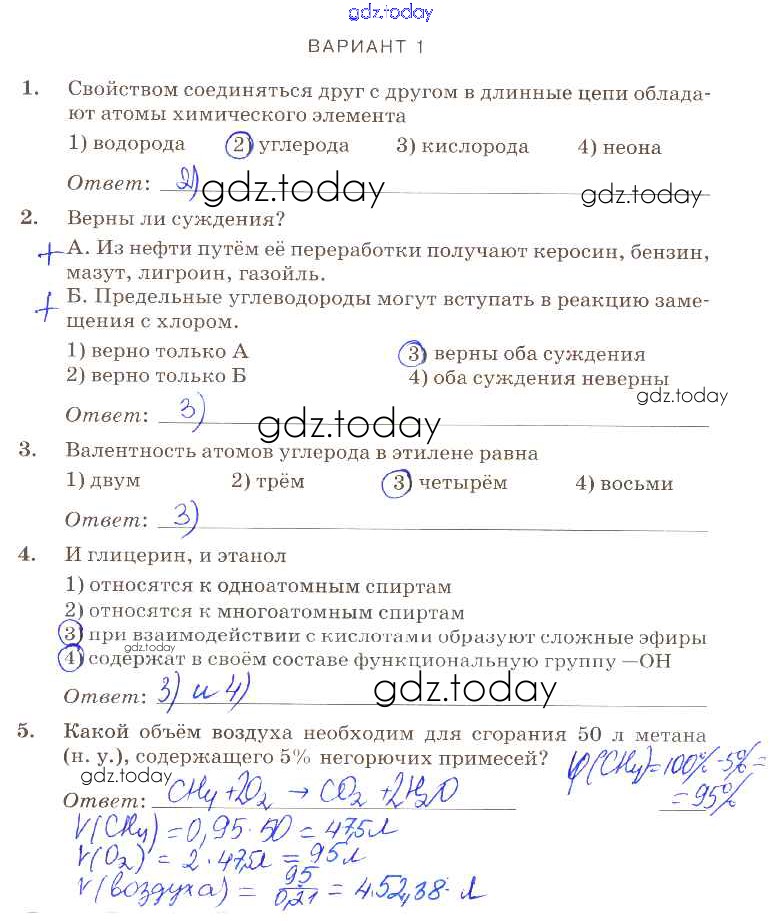 gdz.today
ВАРИАНТ 1
1. Свойством соединяться друг с другом в длинные цепи облада-
ют атомы химического элемента
1) водорода 2) углерода 3) кислорода 4) неона
Ответ: 2)
gdz.today gdz.today
2. Верны ли суждения?
+ А. Из нефти путём её переработки получают керосин, бензин,
мазут, лигроин, газойль.
+ Б. Предельные углеводороды могут вступать в реакцию заме-
щения с хлором.
1) верно только А 3) верны оба суждения
2) верно только Б 4) оба суждения неверны
gdz.today
Ответ: 3)
gdz.today
3. Валентность атомов углерода в этилене равна
1) двум 2) трём 3) четырём 4) восьми
Ответ: 3)
4. И глицерин, и этанол
1) относятся к одноатомным спиртам
2) относятся к многоатомным спиртам
3) при взаимодействии с кислотами образуют сложные эфиры
gdz.today
4) содержат в своём составе функциональную группу —ОН
Ответ: 3) и 4)
gdz.today
5. Какой объём воздуха необходим для сгорания 50 л метана
(н. у.), содержащего 5% негорючих примесей? φ(CH4)=100%-5%=
= 95%
gdz.today
Ответ: CH4+2O2 → CO2 +2H2O
V(CH4) = 0,95·50 = 47,5л
V(O2) = 2·47,5л = 95л
V(воздуха) = 95/0,21 = 452,38 л